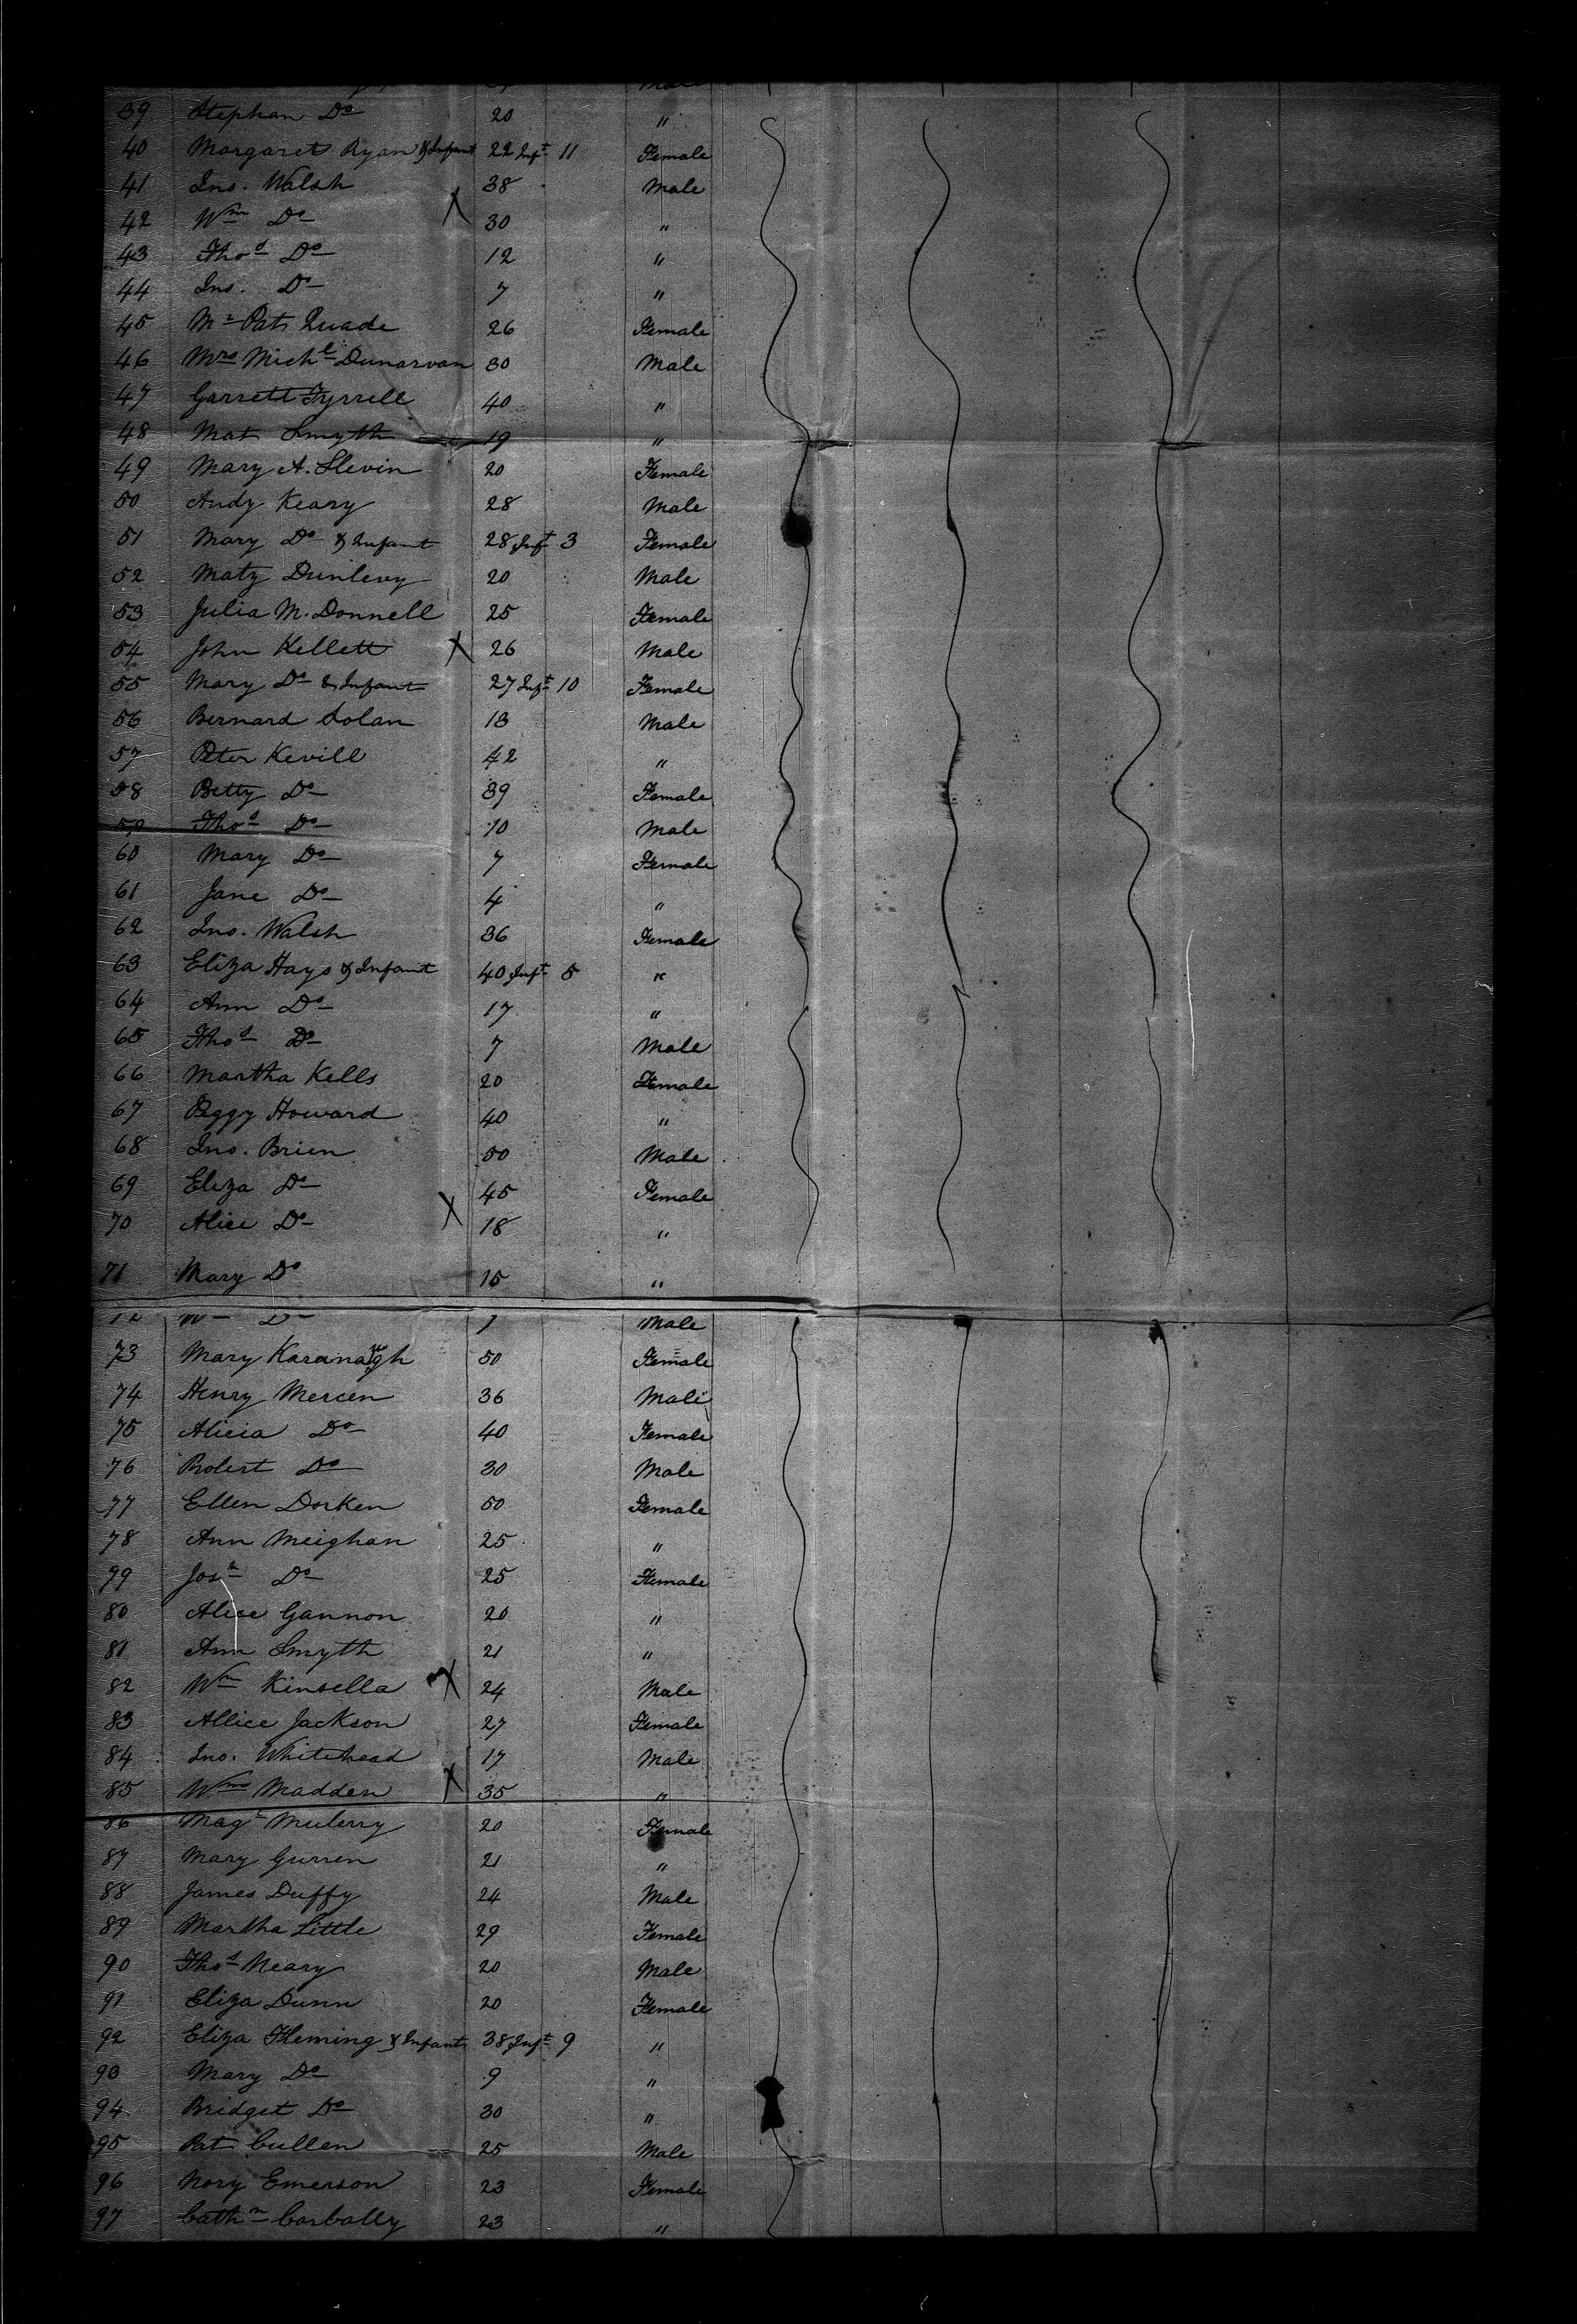 Male
39 Stephan Do 20 "
40 Margaret Ryan & Infant 22 Inft 11 Female
41 Jno. Walsh 38 Male
42 Wm Do X 30 "
43 Thos Do 12 "
44 Jno. Do 7 "
45 Mr Pat Quade 26 Female
46 Mrs Michl Dunarvan 30 Male
47 Garrett Tyrrell 40 "
48 Mat Smyth 19 "
49 Mary A. Slevin 20 Female
50 Andy Keary 28 Male
51 Mary Do & Infant 28 Inft 3 Female
52 Maty Dunlevy 20 Male
53 Julia M. Donnell 25 Female
54 John Kellett X 26 Male
55 Mary Do & Infant 27 Inft 10 Female
56 Bernard Dolan 18 Male
57 Peter Kevill 42 "
58 Betty Do 39 Female
59 Thos Do 10 Male
60 Mary Do 7 Female
61 Jane Do 4 "
62 Jno. Walsh 36 Female
63 Eliza Hays & Infant 40 Inft 5 "
64 Ann Do 17 "
65 Thos Do 7 Male
66 Martha Kells 20 Female
67 Peggy Howard 40 "
68 Jno. Brien 50 Male
69 Eliza Do 45 Female
70 Alice Do X 18 "
71 Mary Do 15 "
72 Wm Do 7 Male
73 Mary Karanaugh 50 Female
74 Henry Mercen 36 Male
75 Alicia Do 40 Female
76 Robert Do 30 Male
77 Ellen Dorken 50 Female
78 Ann Meighan 25 "
79 Josh Do 25 Female
80 Alice Gannon 20 "
81 Ann Smyth 21 "
82 Wm Kinsella X 24 Male
83 Allice Jackson 27 Female
84 Jno. Whitehead 17 Male
85 Wm Madden X 35 "
86 Magt Mulerry 20 Female
87 Mary Gurren 21 "
88 James Duffy 24 Male
89 Martha Little 29 Female
90 Thos Neary 20 Male
91 Eliza Dunn 20 Female
92 Eliza Fleming & Infant 38 Inft 9 "
93 Mary Do 9 "
94 Bridget Do 30 "
95 Pat Cullen 25 Male
96 Nory Emerson 23 Female
97 Cathn Carbally 23 "